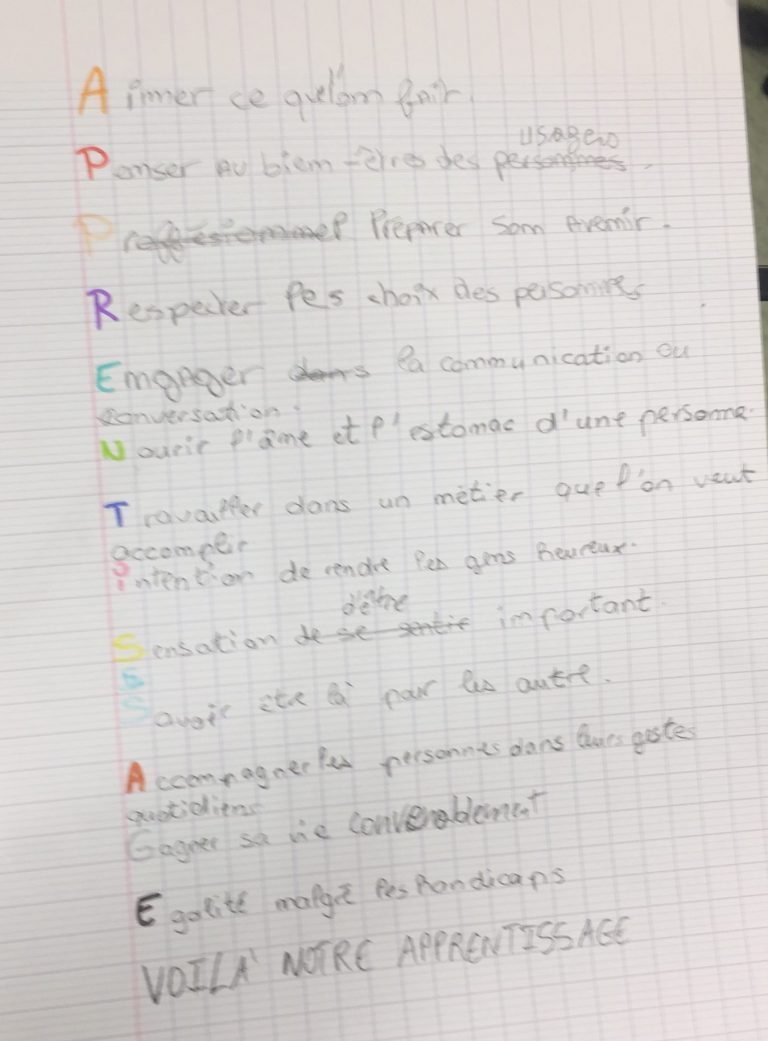 Aimer ce quel'om fair.
usagers
Penser au biem-êtres des personnes.
Proffesionnel Préparer som avenir.
Respecter les choix des personnes
Emgager dans la communication ou
conversation.
Nourir l'âme et l'estomac d'une personne.
Travailler dans un métier que l'on veut
accomplir
intention de rendre les gens heureux.
d'être
Sensation de se sentir important.
S
Savoir etre là pour les autre.
Accompagner les personnes dans leurs gestes
quotidiens
Gagner sa vie convenablement
Egalité malgré les handicaps
VOILA' NOTRE APPRENTISSAGE